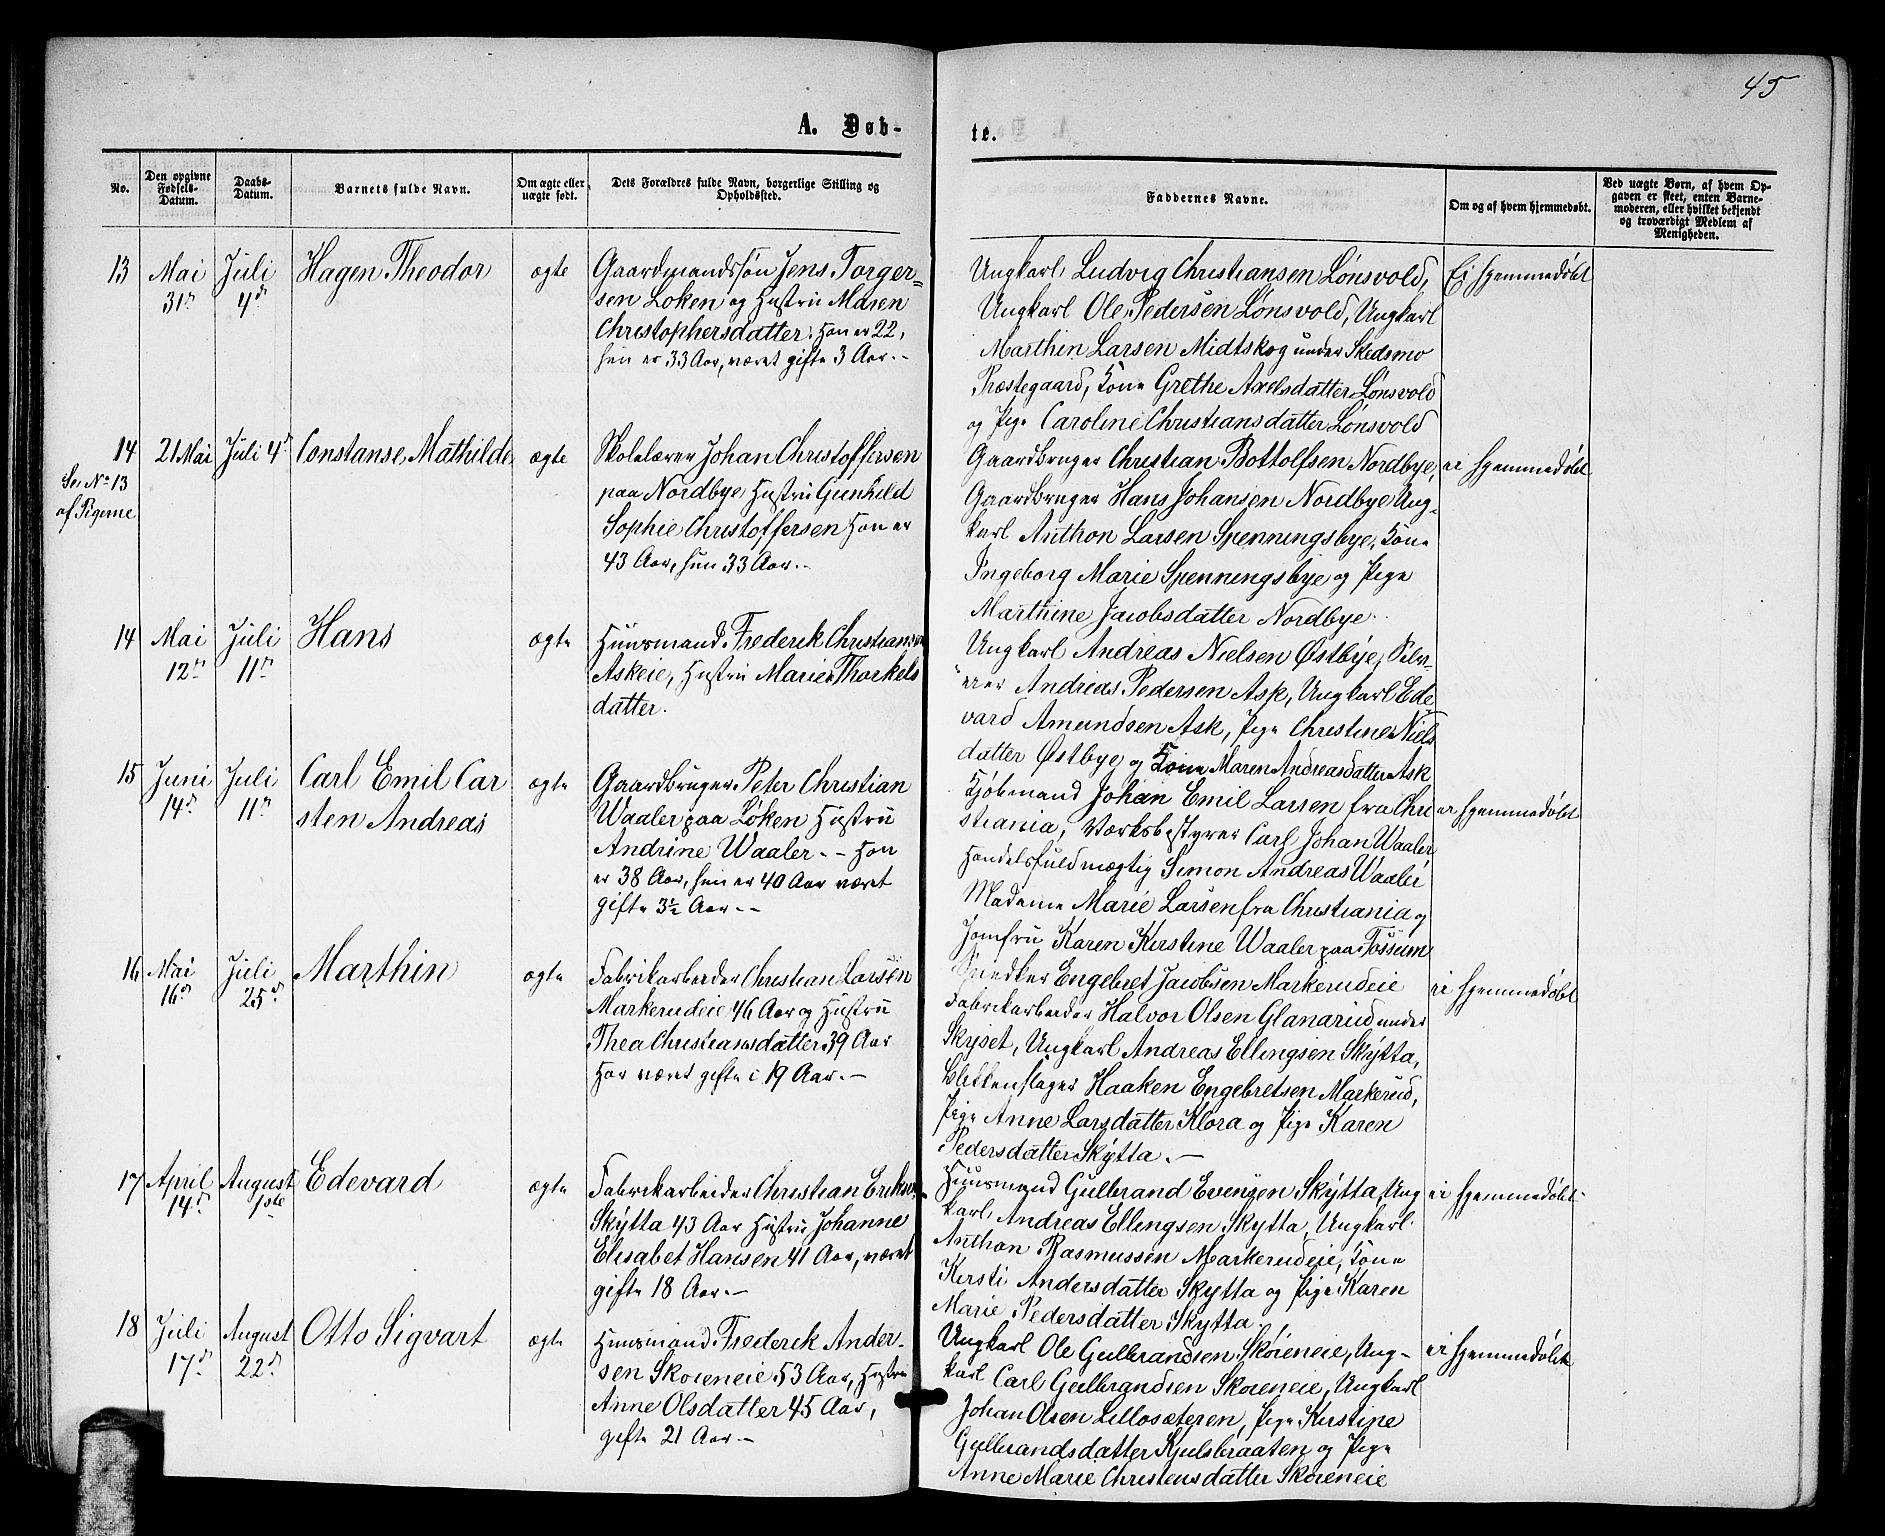 45
A. Døb-
te.
No.
Den opgivne Fødsels-Datum.
Daabs-Datum.
Barnets fulde Navn.
Om ægte eller uægte født.
Dets Forældres fulde Navn, borgerlige Stilling og Opholdssted.
Faddernes Navne.
Om og af hvem hjemmedøbt.
Ved uægte Børn, af hvem Op-
gaven er skeet, enten Barne-
moderen, eller hvilket bekjendt
og troværdigt Medlem af
Menigheden.
13
Mai
31te
Juli
4de
Hagen Theodor
ægte
Gaardmandssøn Jens Torger-
sen Loken og Hustru Maren
Christophersdatter: Han er 22,
hun er 33 Aar, været gifte 3 Aar.-
Ungkarl Ludvig Christiansen Lønsvold,
Ungkarl Ole Pedersen Lønsvold, Ungkarl
Marthin Larsen Midtskog under Skedsmo
Præstegaard, Kone Grethe Axelsdatter Lønsvold
og Pige Caroline Christiansdatter Lønsvold
Ei hjemmedøbt
14
Se No 13
af Pigerne
21 Mai
Juli 4de
Constanse Mathilde
ægte
Skolelærer Johan Christoffersen
paa Nordbye Hustru Gunhild
Sophie Christoffersen Han er
43 Aar, hun 33 Aar.-
Gaardbruger Christian Bottolfsen Nordbye,
Gaardbruger Hans Johansen Nordbye Ung-
karl Anthon Larsen Spenningsbye, Kone
Ingeborg Marie Spenningsbye og Pige
Marthine Jacobsdatter Nordbye.
ei hjemmedøbt
14
Mai
12te
Juli
11te
Hans
ægte
Huusmand Frederik Christiansen
Askeie, Hustru Marie Thorkels
datter.
Ungkarl Andreas Nielsen Østbye,
Andreas Pedersen Ask, Ungkarl Ede
vard Amundsen Ask, Pige Christine Niels
datter Østbye og Kone Maren Andreasdatter Ask
15
Juni
14de
Juli
11te
Carl Emil Car
sten Andreas
ægte
Gaardbruger Peter Christian
Waaler paa Løken Hustru
Andrine Waaler.- Han
er 38 Aar, hun er 40 Aar været
gifte 3½ Aar.-
Kjøbmand Johan Emil Larsen fra Chri
stiania, Værksbestyrer Carl Johan Waaler
Handelsfuldmægtig Simon Andreas Waaler
Madame Marie Larsen fra Christiania og
Jomfru Karen Kirstine Waaler paa Fossum
ei hjemmedøbt
16
Mai
16de
Juli
25de
Marthin
ægte
Fabrikarbeider Christian Larsen
Markerudeie 46 Aar og Hustru
Thea Christiansdatter 39 Aar
Har været gifte i 19 Aar.-
Snedker Engebret Jacobsen Markerudeie
Fabrikarbeider Halvor Olsen Glanarud under
Skyset, Ungkarl Andreas Ellingsen Skytta,
Blikkenslager Haaken Engebretsen Markerud,
Pige Anne Larsdatter Klora og Pige Karen
Pedersdatter Skytta.-
ei hjemmedøbt
17
April
14de
August
1ste
Edevard
ægte
Fabrikarbeider Christian Eriksen
Skytta 43 Aar Hustru Johanne
Elisabet Hansen 41 Aar, været
gifte 18 Aar.-
Huusmand Gulbrand Evensen Skytta, Ung
karl Andreas Ellingsen Skytta, Ungkarl
Anthon Rasmussen Markerudeie, Kone
Kirsti Andersdatter Skytta og Pige Karen
Marie Pedersdatter Skytta.
ei hjemmedøbt
18
Juli
17de
August
22de
Otto Sigvart
ægte
Huusmand Frederik Ander-
sen Skøieneie 53 Aar, Hustru
Anne Olsdatter 45 Aar,
gifte 21 Aar.-
Ungkarl Ole Gulbrandsen Skøieneie, Ung-
karl Carl Gulbrandsen Skøieneie, Ungkarl
Johan Olsen Lillosæteren, Pige Kirstine
Gulbrandsdatter Kjulsbraaten og Pige
Anne Marie Christensdatter Skøieneie
ei hjemmedøbt